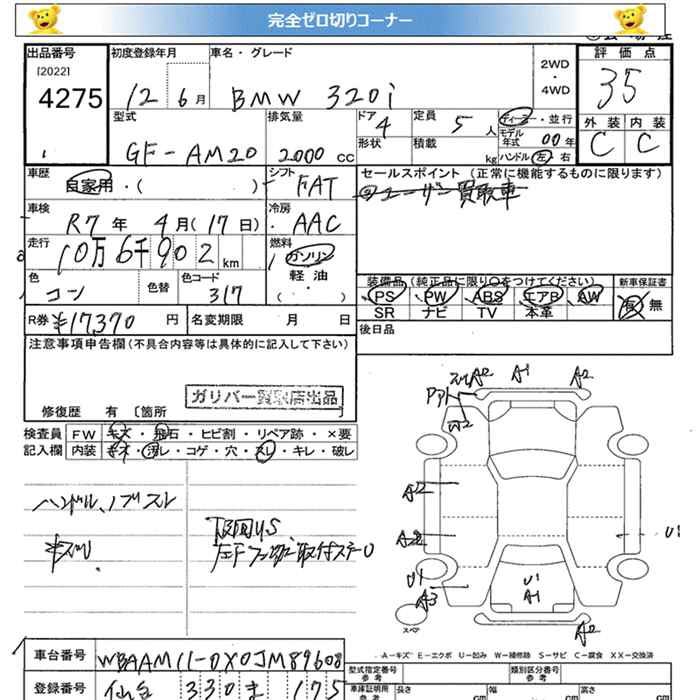 完全ゼロ切りコーナー
出品番号 初度登録年月 車名・グレード 評価点
[2022]
4275 12 6月 BMW 320i 2WD・4WD 35
型式 排気量 ドア 4 定員 5人 ディーラー・並行 外装 内装
GF-AM20 2000cc 形状 積載 kg モデル年式 00年 C C
ハンドル 左 右
車歴 自家用・( ) シフト FAT セールスポイント (正常に機能するものに限ります)
ユーザー買取車
車検 R7年 4月(17日) 冷房 AAC
走行 10万6千902km 燃料 ガソリン
軽油
( ・ )
色 コン 色替 色コード 317
装備品(純正品に限り○をつけてください) 新車保証書
PS PW ABS エアB AW 有 無
SR ナビ TV 本革
R券 ¥17370円 名変期限 月 日 後日品
注意事項申告欄(不具合内容等は具体的に記入して下さい)
ガリバー買取店出品
修復歴 有 〔箇所 〕
検査員 FW キズ・飛石・ヒビ割・リペア跡・×要
記入欄 内装 キズ・汚レ・コゲ・穴・スレ・キレ・破レ
ハンドル、ノブスレ
キズU
下回りS
A2 A1 A2
A2
A2
U1
U1
A3
U1
A1
A2
スペア
A-キズ E-エクボ U-凹み W-補修跡 S-サビ C-腐食 XX-交換済
車台番号 WBAAM11-0X0JM89608
型式指定番号 参考 類別区分番号 参考
登録番号 仙台 330 ま 175
車庫証明用 参考 長さ cm 幅 cm 高さ cm